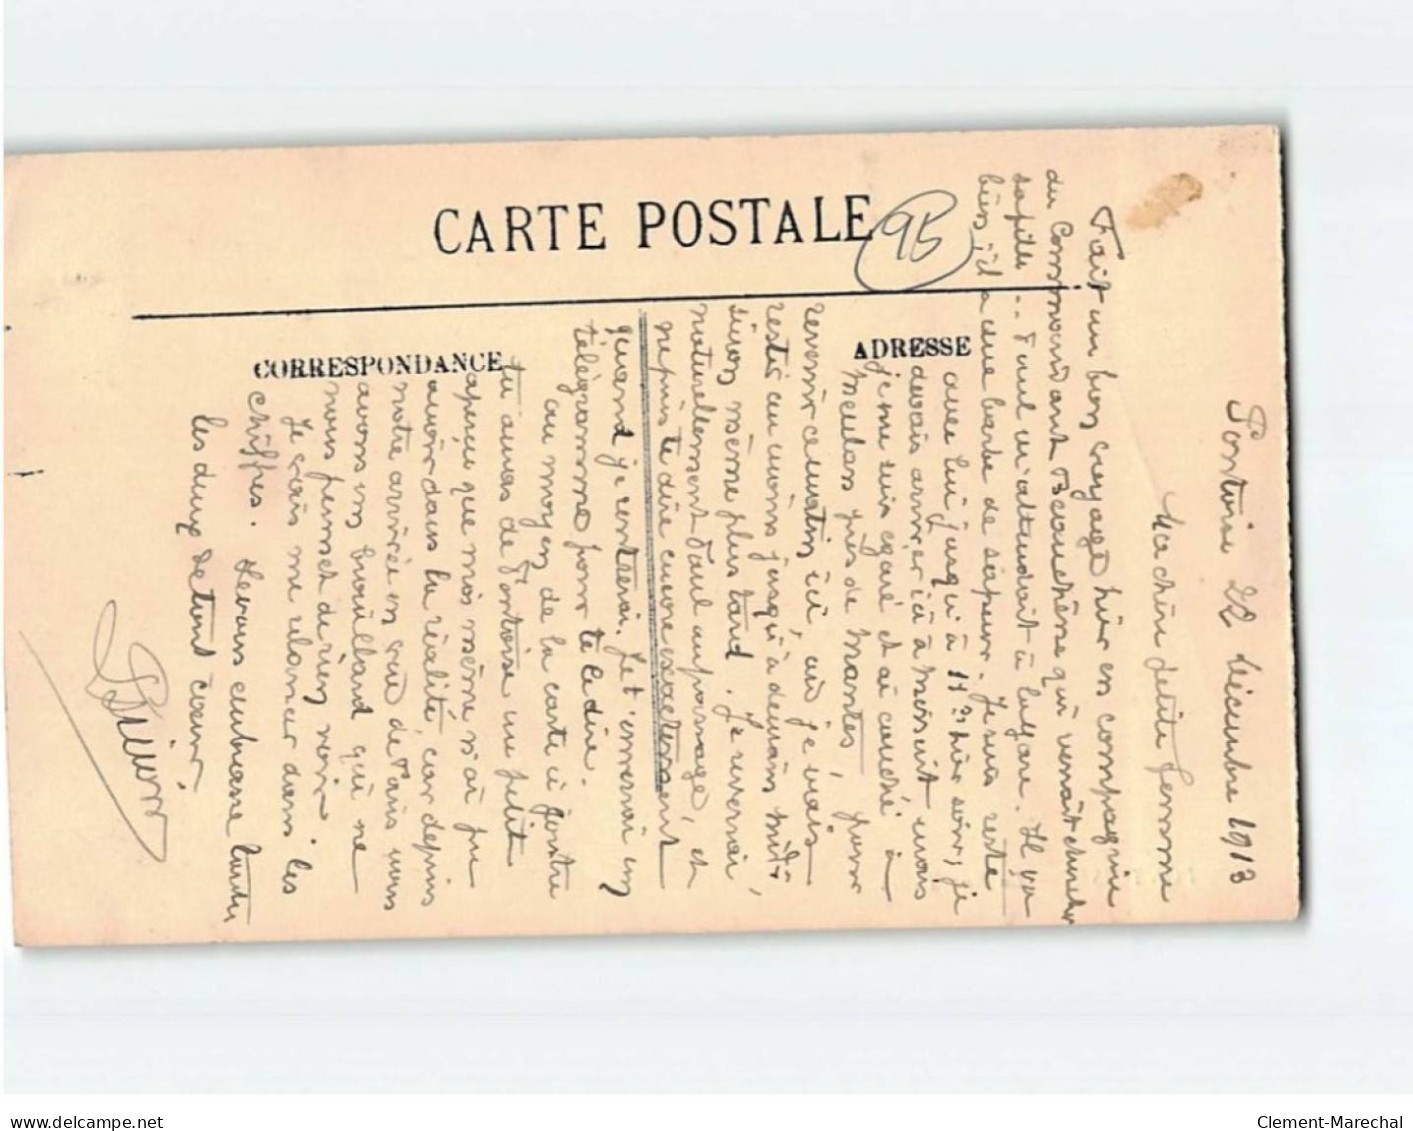 CARTE POSTALE
95
CORRESPONDANCE
ADRESSE
Pontoise 22 Décembre 1913
Ma chère petite femme
Fait un bon voyage hier en compagnie
du Commandant Beauchêne qui venait chercher
sa fille.. Paul m'attendait à la gare. Il va
bien, il a une barbe de sapeur. Je suis resté
avec lui jusqu'à 11h hier soir, je
devais arriver ici à minuit mais
je me suis egaré et ai couché à
Meulan près de Mantes, pour
revenir ce matin ici, où je vais
rester au moins jusqu'à demain midi
sinon même plus tard. Je reverrai
naturellement Paul au passage, et
ne puis te dire encore exactement
quand je rentrerai. Je t'enverrai un
télégramme pour te le dire.
au moyen de la carte ci jointe
tu auras de Pontoise un petit
aperçu que moi même n'ai pu
avoir dans la réalité, car depuis
notre arrivée en gare de Paris nous
avons un brouillard qui ne
nous permet de rien voir.
Je vais me relancer dans les
chiffres. Je vous embrasse toutes
les deux de tout coeur
Clement-Marechal
delcampe.net